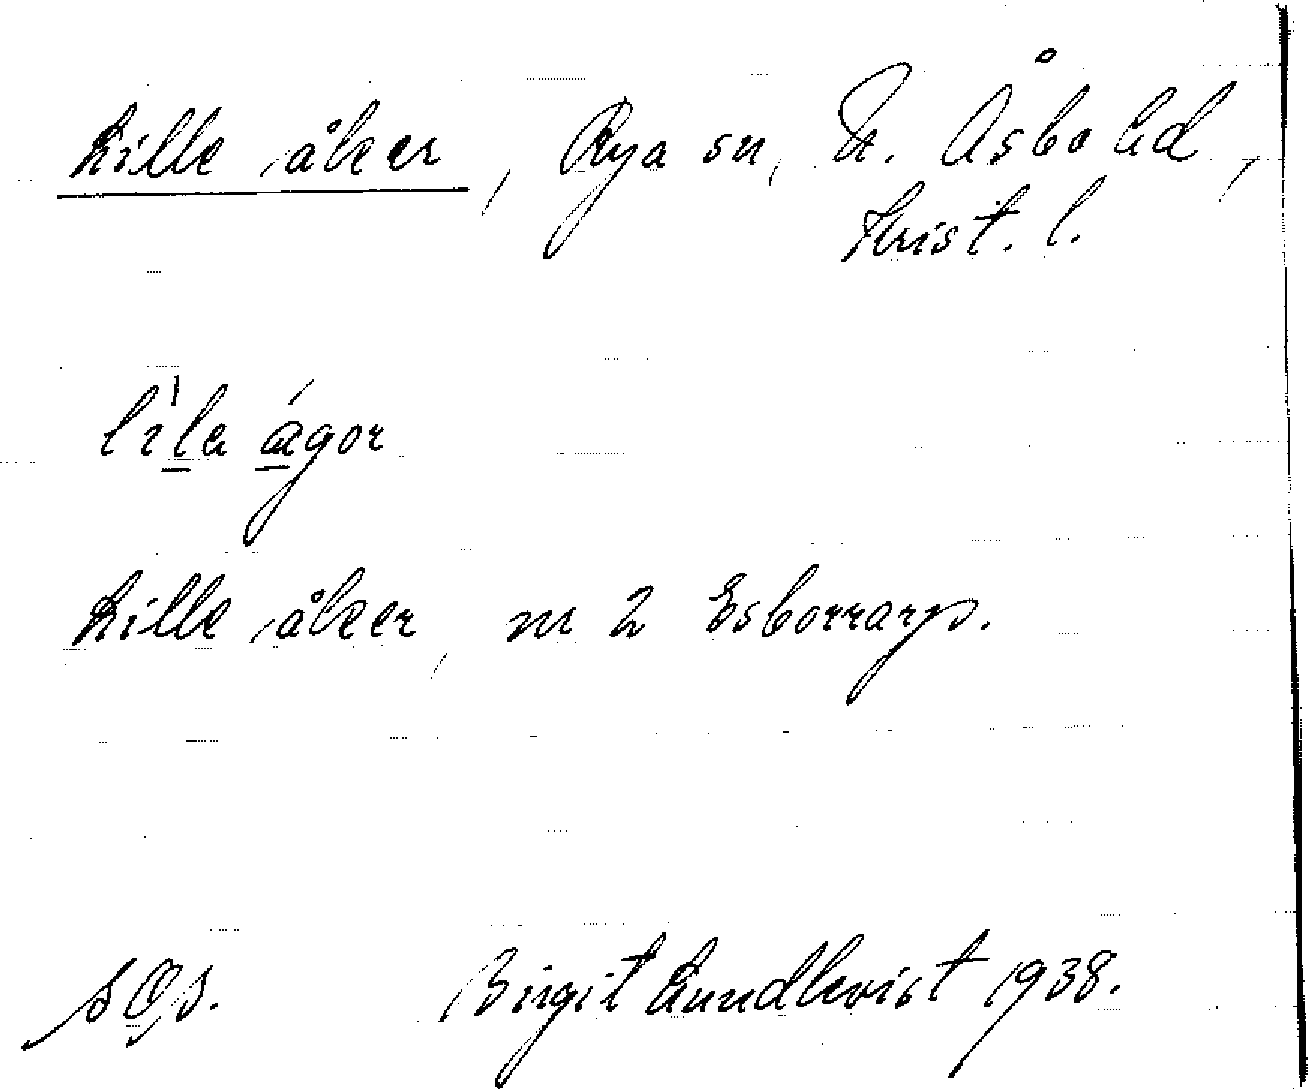 Lille åker, Rya sn, N. Åsbo hd,
Krist. l.
lila ágor
Lille åker, nr 2 Esborrarp.
Birgit Lundkvist 1938.